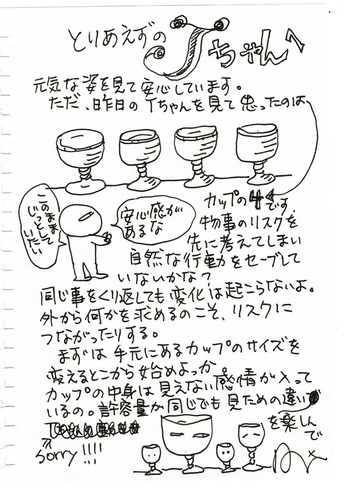 とりあえずの Jちゃんへ
元気な姿を見て安心しています。
ただ、昨日のTちゃんを見て思ったのは
カップの4です。
このまま
じっとして
いたい
安心感が
あるな
物事のリスクを
先に考えてしまい
自然な行動をセーブして
いないかな?
同じ事をくり返しても変化は起こらないよ。
外から何かを求めるのこそ、リスクに
つながったりする。
まずは手元にあるカップのサイズを
変えるとこから始めよっか。
カップの中身は見えない感情が入って
いるの。許容量が同じでも見ための違い
を楽しんで
sorry!!!!